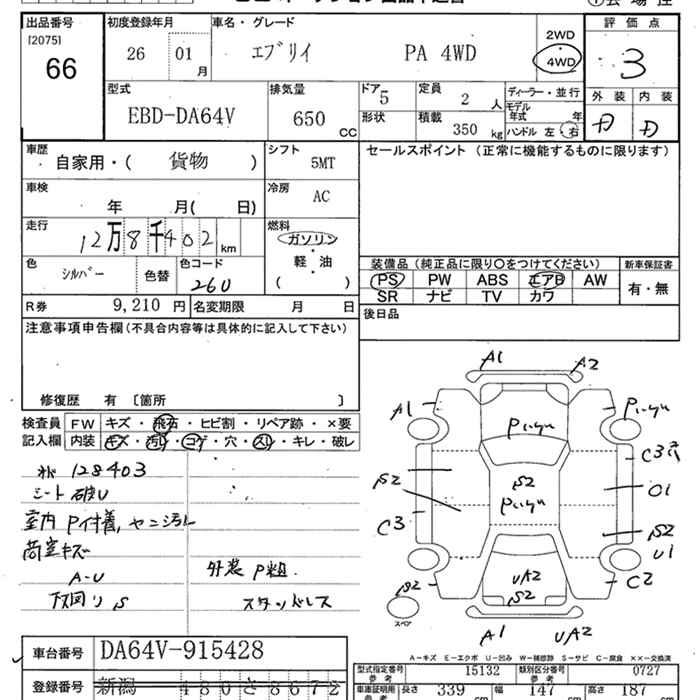 出品番号 初度登録年月 車名・グレード 評価点
[2075] 66 26 01 月 エブリイ PA 4WD 2WD 4WD 3
外装 内装
型式 EBD-DA64V 排気量 650 CC ドア 5 形状 定員 2 人 積載 350 kg ディーラー・並行 モデル年式 年 ハンドル 左・右 D D
車歴 自家用・( 貨物 ) シフト 5MT セールスポイント (正常に機能するものに限ります)
車検 年 月( 日) 冷房 AC
走行 12万8千402 km 燃料 ガソリン 軽・油 ( )
色 シルバー 色替 色コード 26U
装備品 (純正品に限り○をつけてください) 新車保証書
PS PW ABS エアB AW 有・無
SR ナビ TV カワ
R券 9,210 円 名変期限 月 日 後日品
注意事項申告欄 (不具合内容等は具体的に記入して下さい)
修復歴 有 〔箇所 〕
検査員 FW キズ・飛石・ヒビ割・リペア跡・×要
記入欄 内装 キズ・汚レ・コゲ・穴・スレ・キレ・破レ
128403
シート破レ
室内 P付着, ヤニ汚レ
荷室キズ
A-U
下回り S
外装 P粗.
スタッドレス
A1 A2
A1
C3穴
S2 S2 O1
C3 S2
U1
S2 UA2 C2
S2
スペア A1 UA2
A-キズ E-エクボ U-凹み W-補修跡 S-サビ C-腐食 ××-交換済
車台番号 DA64V-915428 型式指定番号 参考 15132 類別区分番号 参考 0727
登録番号 新潟 480さ8672 車庫証明用 参考 長さ 339 cm 幅 147 cm 高さ 187